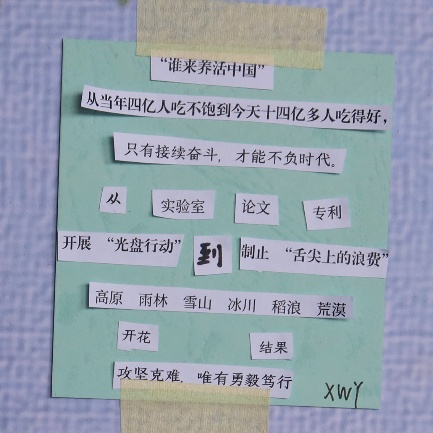 “谁来养活中国”
从当年四亿人吃不饱到今天十四亿多人吃得好，
只有接续奋斗，才能不负时代。
从 实验室 论文 专利
开展 “光盘行动” 到 制止 “舌尖上的浪费”
高原 雨林 雪山 冰川 稻浪 荒漠
开花 结果
攻坚克难，唯有勇毅笃行
XWY